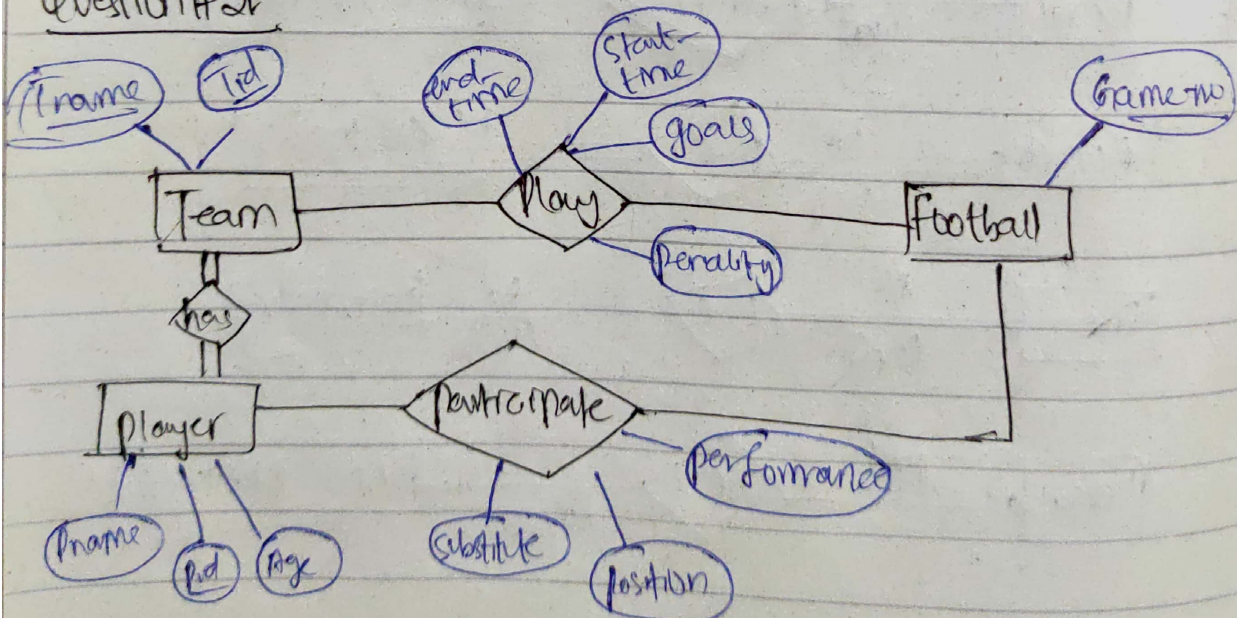 Question#2
Tname
Tid
end-
time
start-
time
goals
Game-no
Team
Play
football
Penality
has
Player
Participate
performance
Pname
Pid
Age
substitute
position